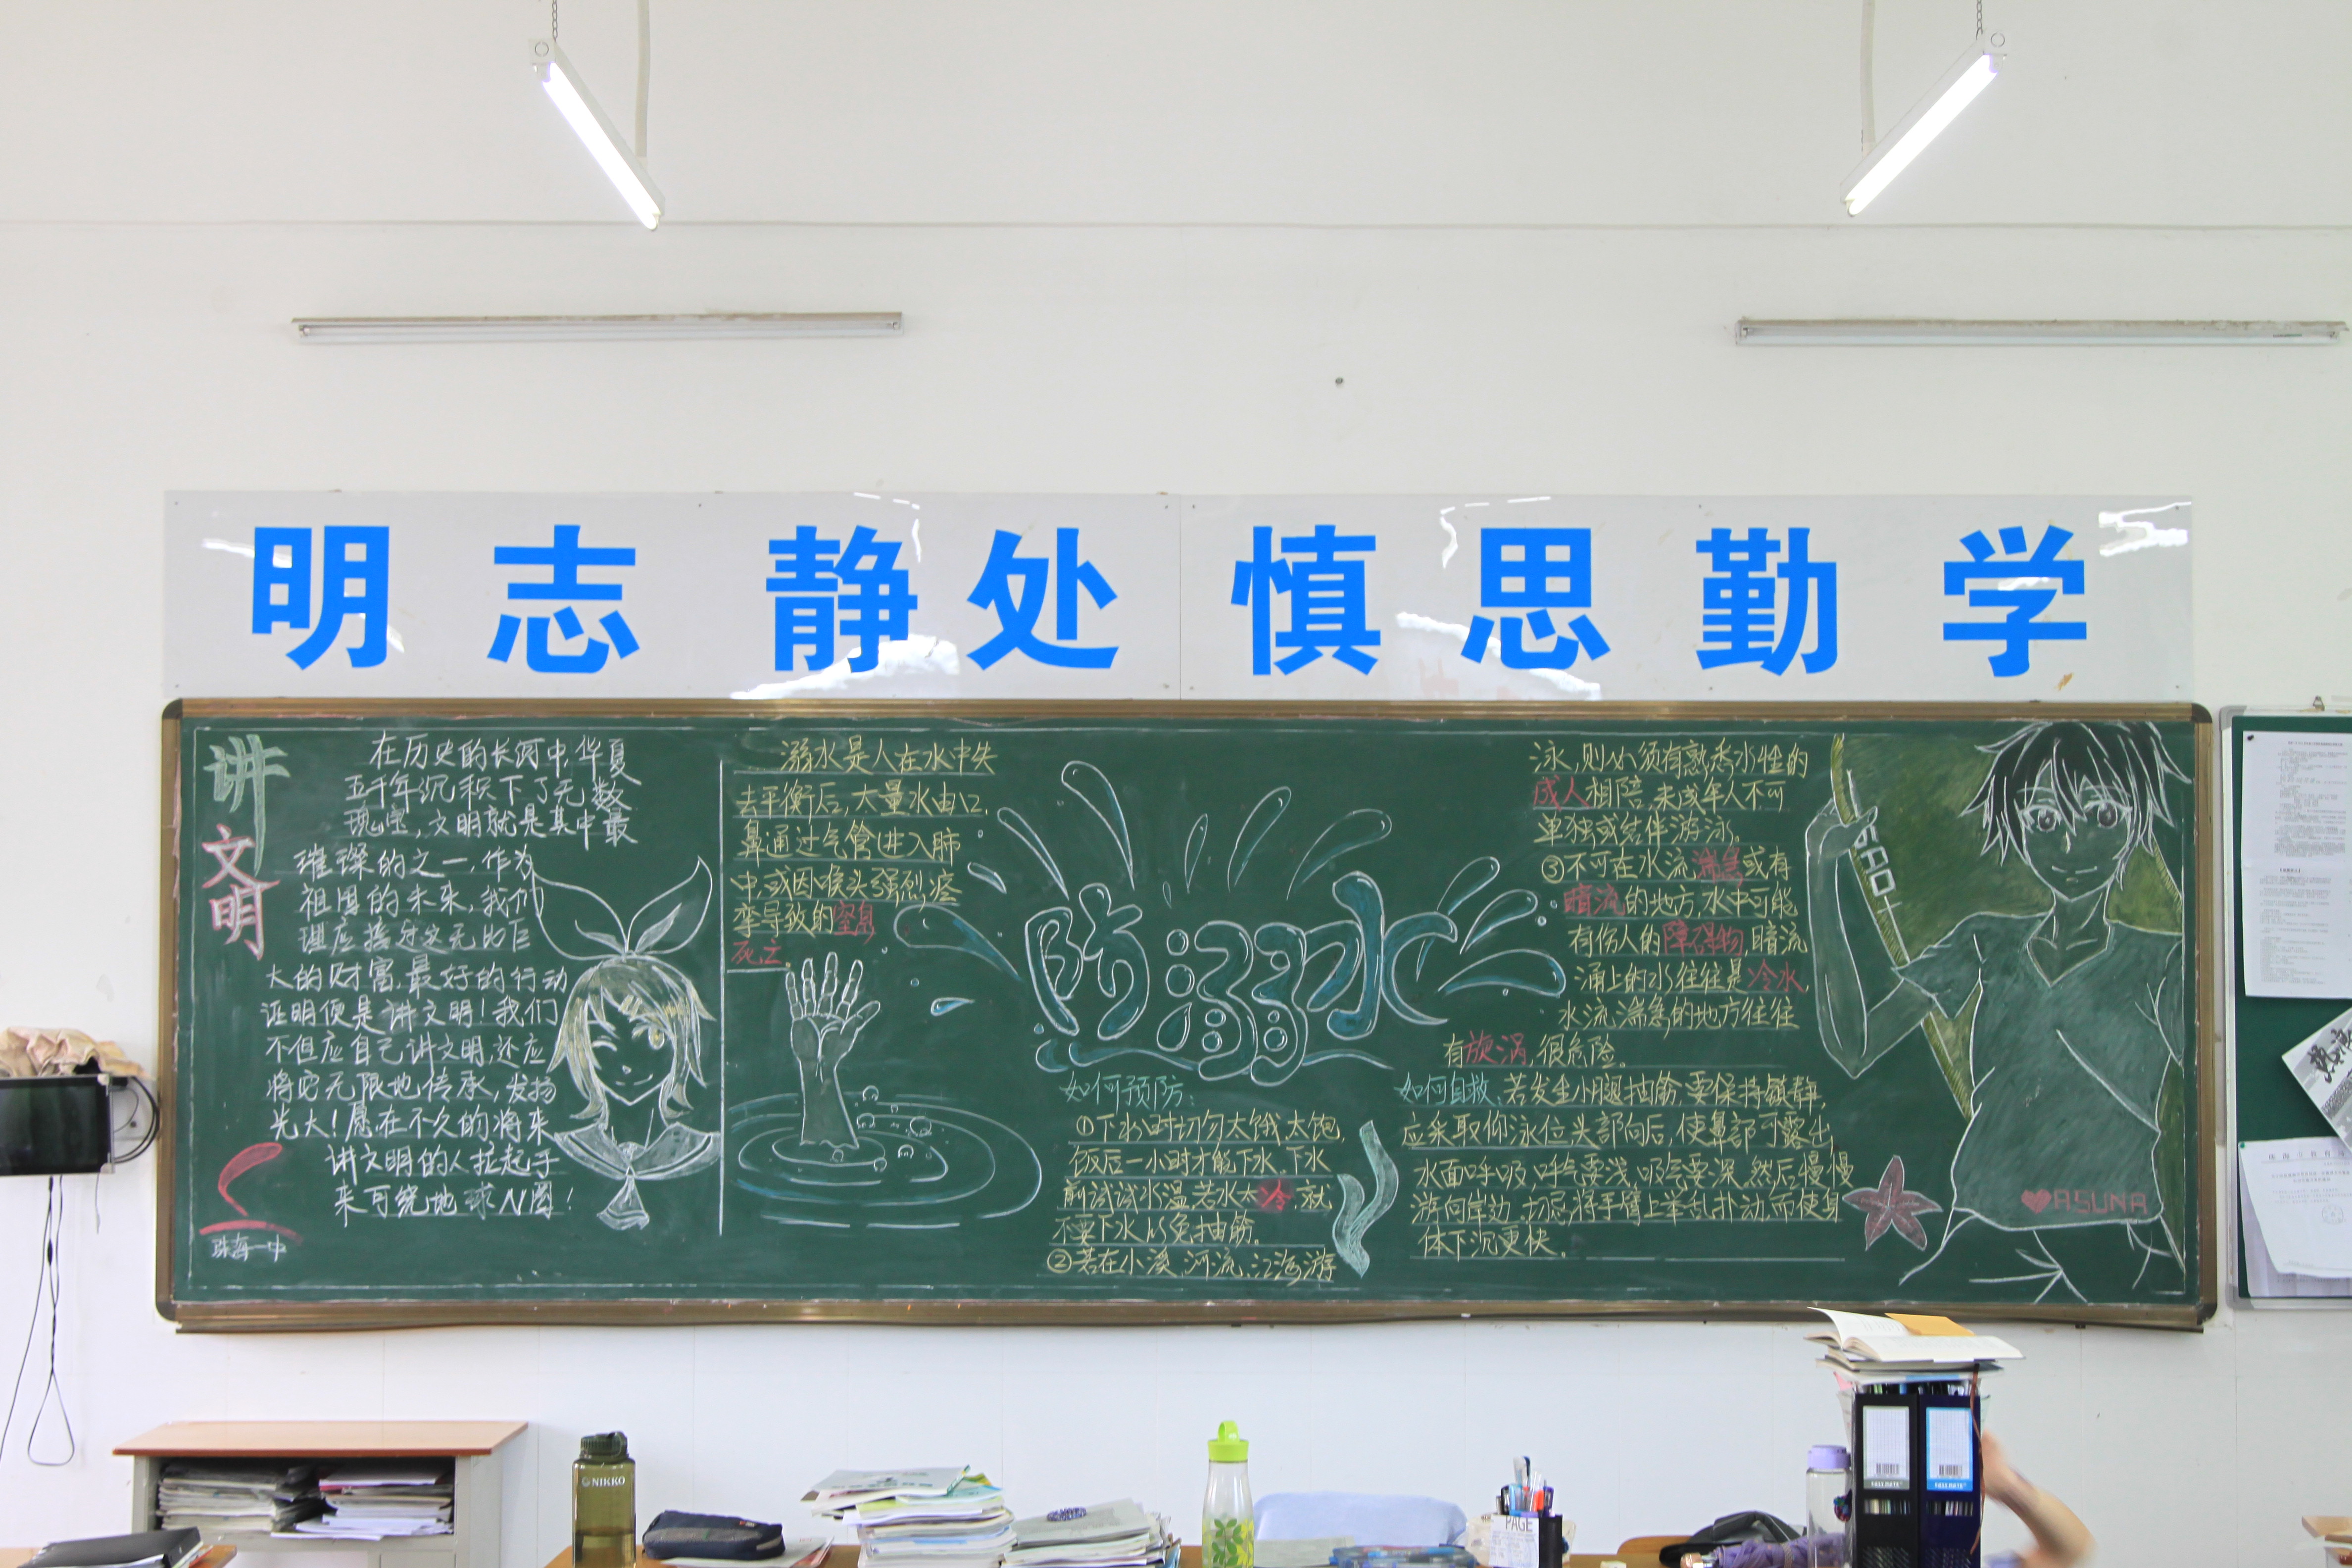 明志静处慎思勤学
讲文明
在历史的长河中,华夏
五千年沉积下了无数
瑰宝,文明就是其中最
璀璨的之一,作为
祖国的未来,我们
理应接过这无比巨
大的财富,最好的行动
证明便是讲文明!我们
不但应自己讲文明,还应
将它无限地传承,发扬
光大!愿在不久的将来
讲文明的人拉起手
来可绕地球N圈!
珠海一中
溺水是人在水中失
去平衡后,大量水由口
鼻通过气管进入肺
中,或因喉头强烈痉
挛导致的窒息
死亡。
防溺水
如何预防:
①下水时切勿太饿、太饱,
饭后一小时才能下水,下水
前试试水温,若水太冷,就
不要下水,以免抽筋。
②若在小溪,河流,江海游
泳,则必须有熟悉水性的
成人相陪,未成年人不可
单独或结伴游泳。
③不可在水流湍急或有
暗流的地方,水中可能
有伤人的障碍物,暗流
涌上的水往往是冷水,
水流湍急的地方往往
有旋涡,很危险。
如何自救:若发生小腿抽筋,要保持镇静,
应采取仰泳位,头部向后,使鼻部可露出
水面呼吸,呼气要浅,吸气要深,然后慢慢
游向岸边,切忌将手臂上举乱扑动,而使身
体下沉更快。
SAO
♥ASUNA
NIKKO
PAGE